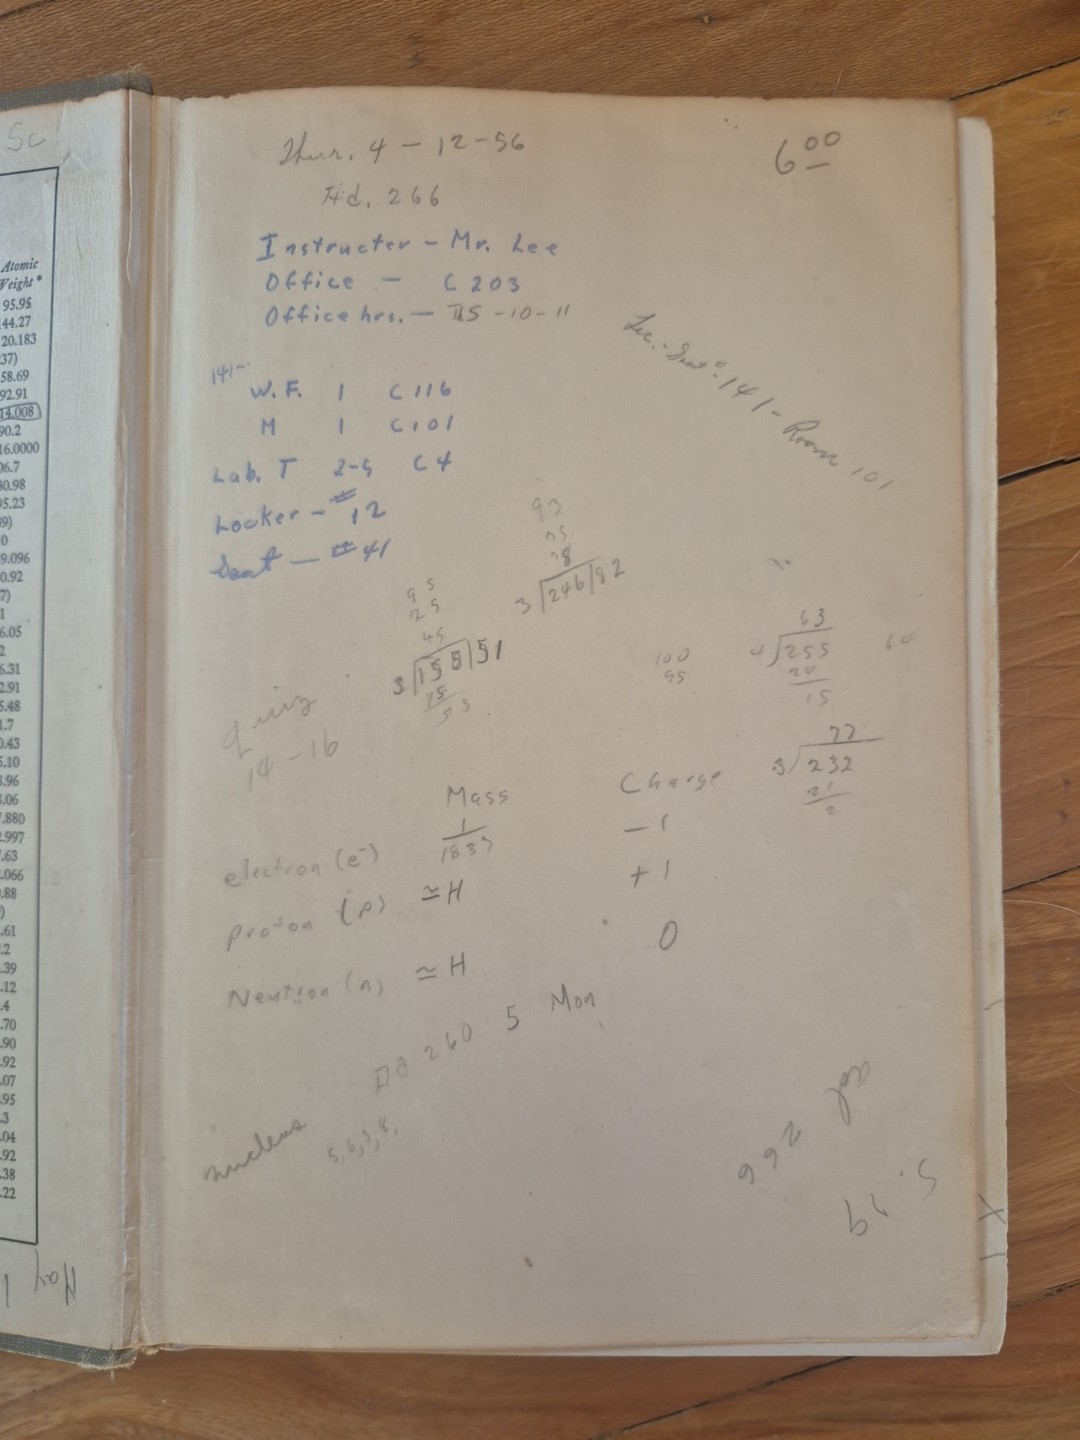 Sc
Thur. 4-12-56
6 00
Ad. 266
Instructer - Mr. Lee
Office - C 203
Office hrs. - -10-11
141-
W.F. 1 C 116
M 1 C 101
Lab. T 2-5 C 4
Locker - # 12
Seat - # 41
Room 101
93
95
3 246 82
45
3 155 51
15
63
4 255 64
20
15
100
95
quiz
14-16
77
3 232
21
2
Mass Charge
electron (e-) 1/1837 -1
Proton (p) ≃H +1
Neutron (n) ≃H 0
Ad 260 5 Mon
nucleus
266
Atomic
Weight*
95.95
144.27
20.183
37)
58.69
92.91
14.008
90.2
16.0000
06.7
30.98
95.23
39)
0
39.096
0.92
7)
1
6.05
2
6.31
2.91
5.48
1.7
0.43
5.10
8.96
3.06
7.880
2.997
7.63
2.066
0.88
)
.61
.2
.39
.12
.4
.70
.90
.92
.07
.95
.3
.04
.92
.38
.22
May 1